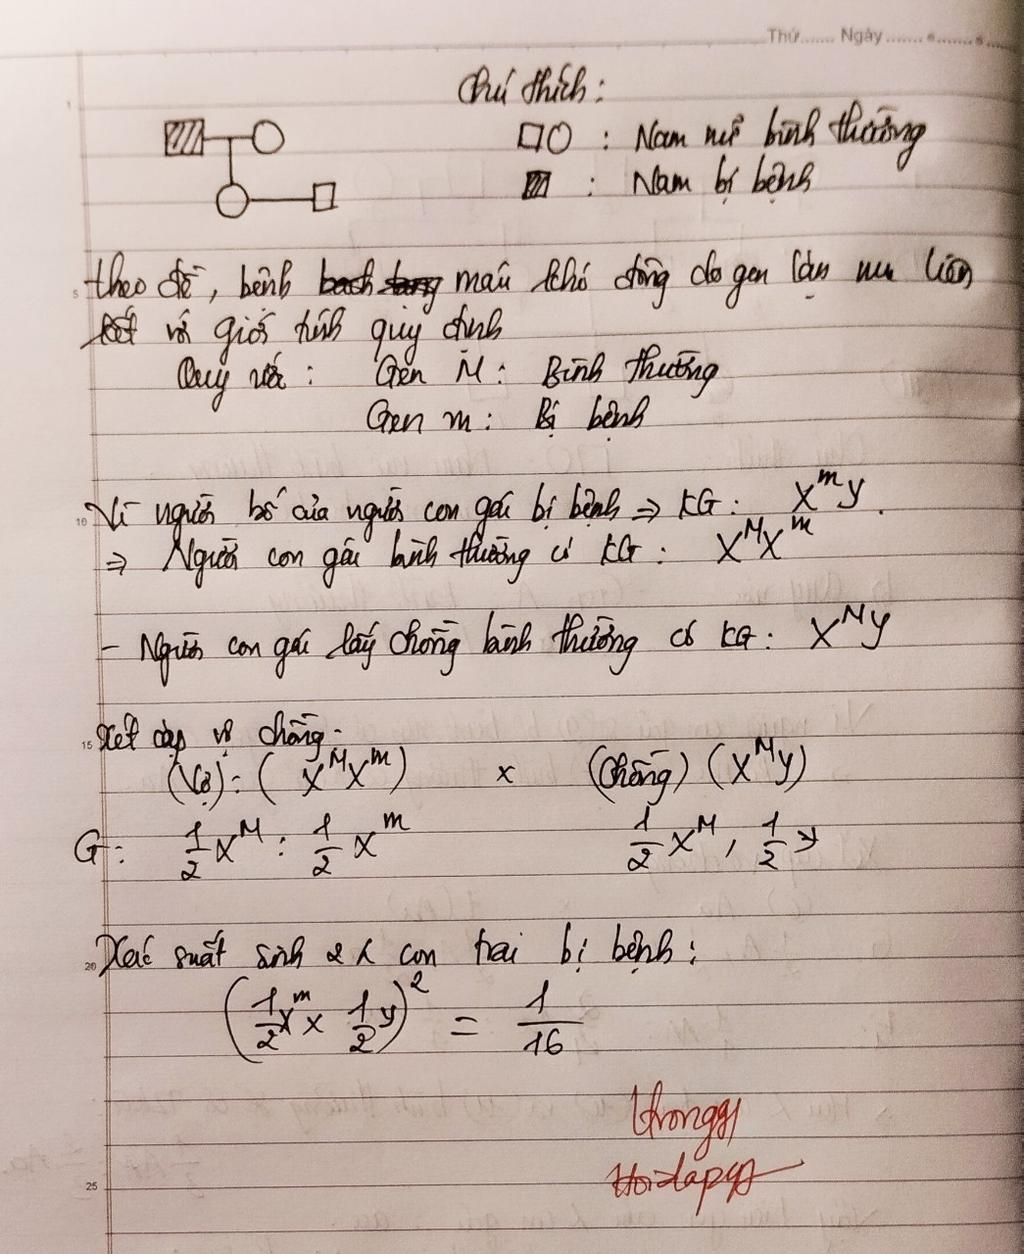 Thứ....... Ngày.............
Chú thích:
: Nam nữ bình thường
: Nam bị bệnh
5 theo đề, bệnh bạch tạng máu khó đông do gen lặn nu liên
kết với giới tính quy định
Quy ước: Gen M: Bình thường
Gen m: Bị bệnh
10 Vì người bố của người con gái bị bệnh ⇒ KG: XᵐY.
⇒ Người con gái bình thường có KG: XᴹXᵐ
- Người con gái lấy chồng bình thường có KG: XᴹY
15 Xét cặp vợ chồng:
(Vợ): (XᴹXᵐ) x (Chồng) (XᴹY)
G: 1/2 Xᴹ : 1/2 Xᵐ 1/2 Xᴹ, 1/2 Y
20 Xác suất sinh 2 con trai bị bệnh:
(1/2 Xᵐ x 1/2 Y)² = 1/16
25